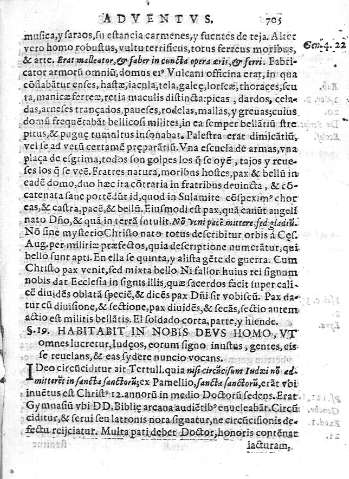 ADVENTVS. 705
musica, y saraos, su estancia carmenes, y fuentes de teja. Alter
vero homo robustus, vultu terrificus, totus ferreus moribus, Gen. 4. 22
& arte. Erat malleator, & faber in cuncta opera æris, & ferri. Fabri-
cator armorū omniū, domus ei⁹ Vulcani officina erat, in qua
enses, hastæ, iacula, tela, galeę, loricæ, thoraces,
manicæ ferreæ, retia maculis distincta: picas, dardos, cela-
das, arneses trançados, paueses, rodelas, mallas, y greuas; cuius
domū frequētabāt bellicosi milites, in ea semper bellatiū stre
pitus, & pugnę tumultus insonabat. Palestra erat dimicātiū,
vel ſe ad vetū certamē preparātiū. Vna escuela de armas, vna
plaça de esgrima, todos son golpes los q̄ se oyē, tajos y reue-
ses los q̄ se veē. Fratres natura, moribus hostes, pax & bellū in
eadē domo, duo hæc ita cōtraria in fratribus deuincta, & cō-
catenata sanc portēdūt id, quod in Sulamite cōspexim⁹ cho-
eas, & castra, pacē, & bellū. Eiusmodi est pax, quā canūt angeli
nato Dño, & quā in terrā Nō veni pacē mittere sed gladiū.
Nō sine mysterio Christo nato totus describitur orbis à Cęs.
Aug. per militiæ præfectos, quia descriptione numeratur, qui
bello sunt apti. En ella se quinta, y alista gēte de guerra. Cum
Christo pax venit, sed mixta bello. Ni fallor huius rei signum
nobis dat Ecclesia in signis illis, quæ sacerdos facit super cali-
cē diuidēs oblatā speciē, & dicēs pax Dñi sit vobiscū. Pax da-
tur cū diuisione, & sectione, pax diuidēs, & secās, sectio autem
actio est militis bellātis. El soldado corta, parte, y hiende.
§. 19. HABITABIT IN NOBIS DEVS HOMO, VT
omnes lucretur, Iudęos, eorum signo inuitus, gentes, eis
se reuelans, & eas sydere nuncio vocans.
IDeo circūciditur ait Tertull. quia nisi circūcisum Iudæi nō ad-
mitterēt in sancta sanctorū; ex Pamellio, sancta sanctorū, erat vbi
inuētus est Christ⁹ 12. annorū in medio Doctorū sedens. Erat
Gymnasiū vbi DD. Bibliæ arcana audiētib⁹ enucleabāt. Circū
ciditur, & serui seu latronis nora signatur, ne circūcisionis de-
fectu reijciatur. Multa pati debet Doctor, honoris contenat
iacturam,